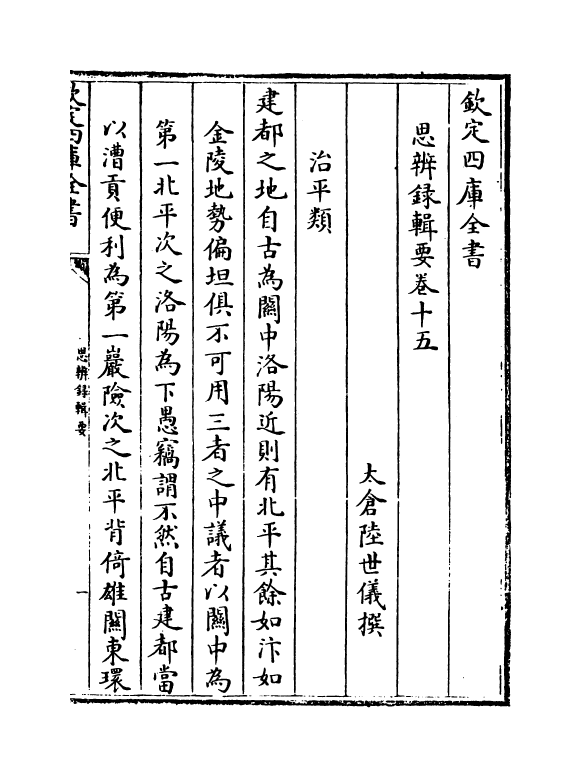 欽定四庫全書
思辨録輯要卷十五
太倉陸世儀撰
治平類
建都之地自古為關中洛陽近則有北平其餘如汴如
金陵地勢偏坦俱不可用三者之中議者以關中為
第一北平次之洛陽為下愚竊謂不然自古建都當
以漕貢便利為第一巖險次之北平背倚雄關東環
欽定四庫全書
思辨録輯要
一